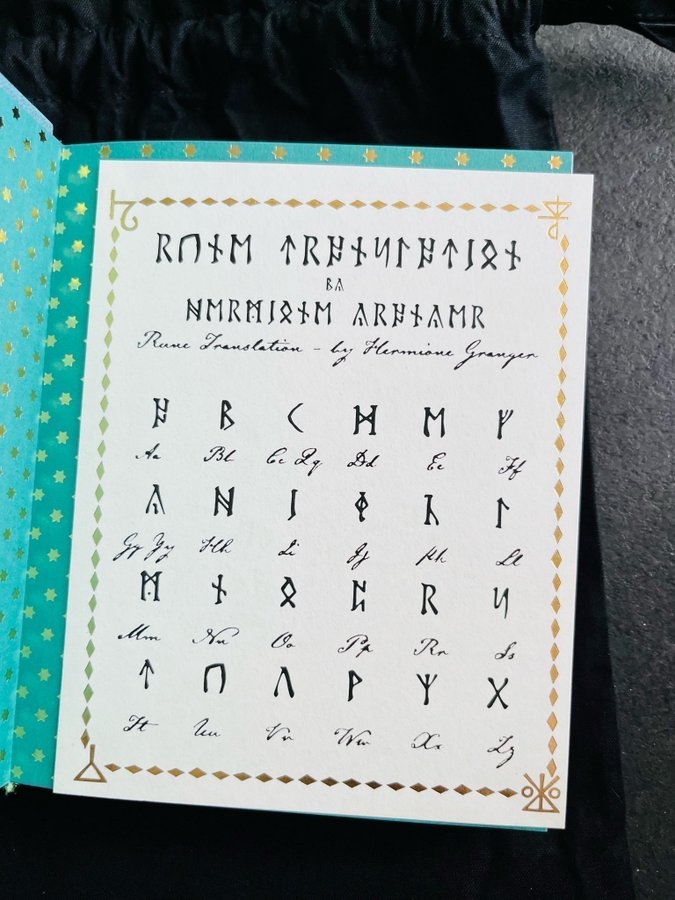 ᚱᚢᚾᛖ ᛏᚱᚨᚾᛋᛚᚨᛏᛁᛟᚾ
ᛒᚤ
ᚻᛖᚱᛗᛁᛟᚾᛖ ᚤᚱᚨᚾᚤᛖᚱ
Rune Translation - by Hermione Granger
ᚨ ᛒ ᚲ ᛞ ᛖ ᚠ
Aa Bb Cc Qq Dd Ee Ff
ᚤ ᚻ ᛁ ᛄ ᚴ ᛚ
Gg Yy Hh Ii Jj Kk Ll
ᛗ ᚾ ᛟ ᛈ ᚱ ᛋ
Mm Nn Oo Pp Rr Ss
ᛏ ᚢ ᚡ ᚹ ᛉ ᚷ
Tt Uu Vv Ww Xx Zz